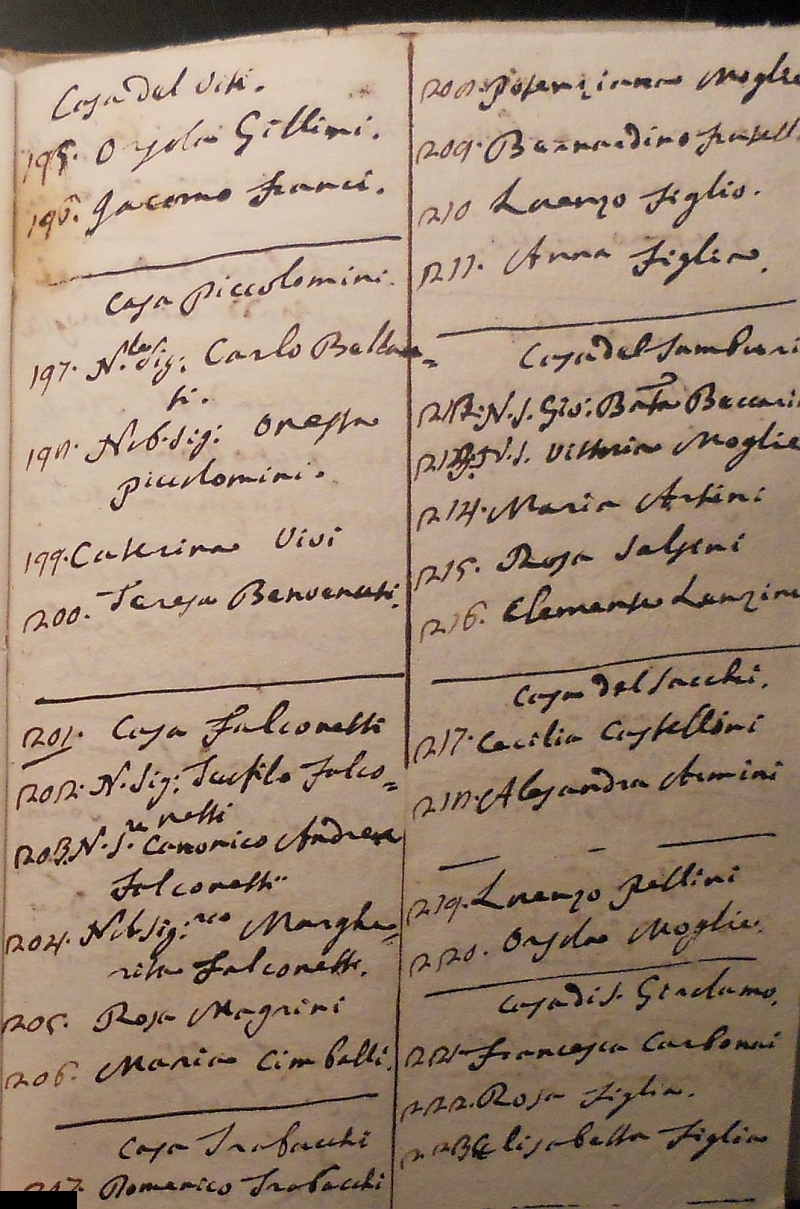 Casa del Viti.
195. Orsola Gillini.
196. Giacomo Franci.
Casa Piccolomini.
197. N.le Sig: Carlo Beldu=
ti.
198. Nob. Sig: Onesta
Piccolomini.
199. Catterina Vivi
200. Teresa Benvenuti.
201. Casa Falconetti
202. N. Sig: Teofilo Falco=
netti
203. N. S. Canonico Andrea
Falconetti
204. Nob. Sig:ra Marghe=
rita Falconetti.
205. Rosa Magrini
206. Maria Cimballi.
Casa Trabacchi
207. Domenico Trabacchi
208. Potenziana Moglie
209. Bernardino fratell
210 Lorenzo figlio.
211. Anna figlia.
Casa del
212. N. S. Gio: Batta Beccari
213. N. S. Vittoria Moglie
214. Maria Artini
215. Rosa Salsini
216. Clemente Lanzin
Casa del Sacchi.
217. Cecilia Castellini
218. Alesandra Armini
219. Lorenzo Pellini
220. Orsola Moglie.
Casa di S. Girolamo.
221. Francesca Carbonai
222. Rosa figlia.
223 Elisabetta figlia